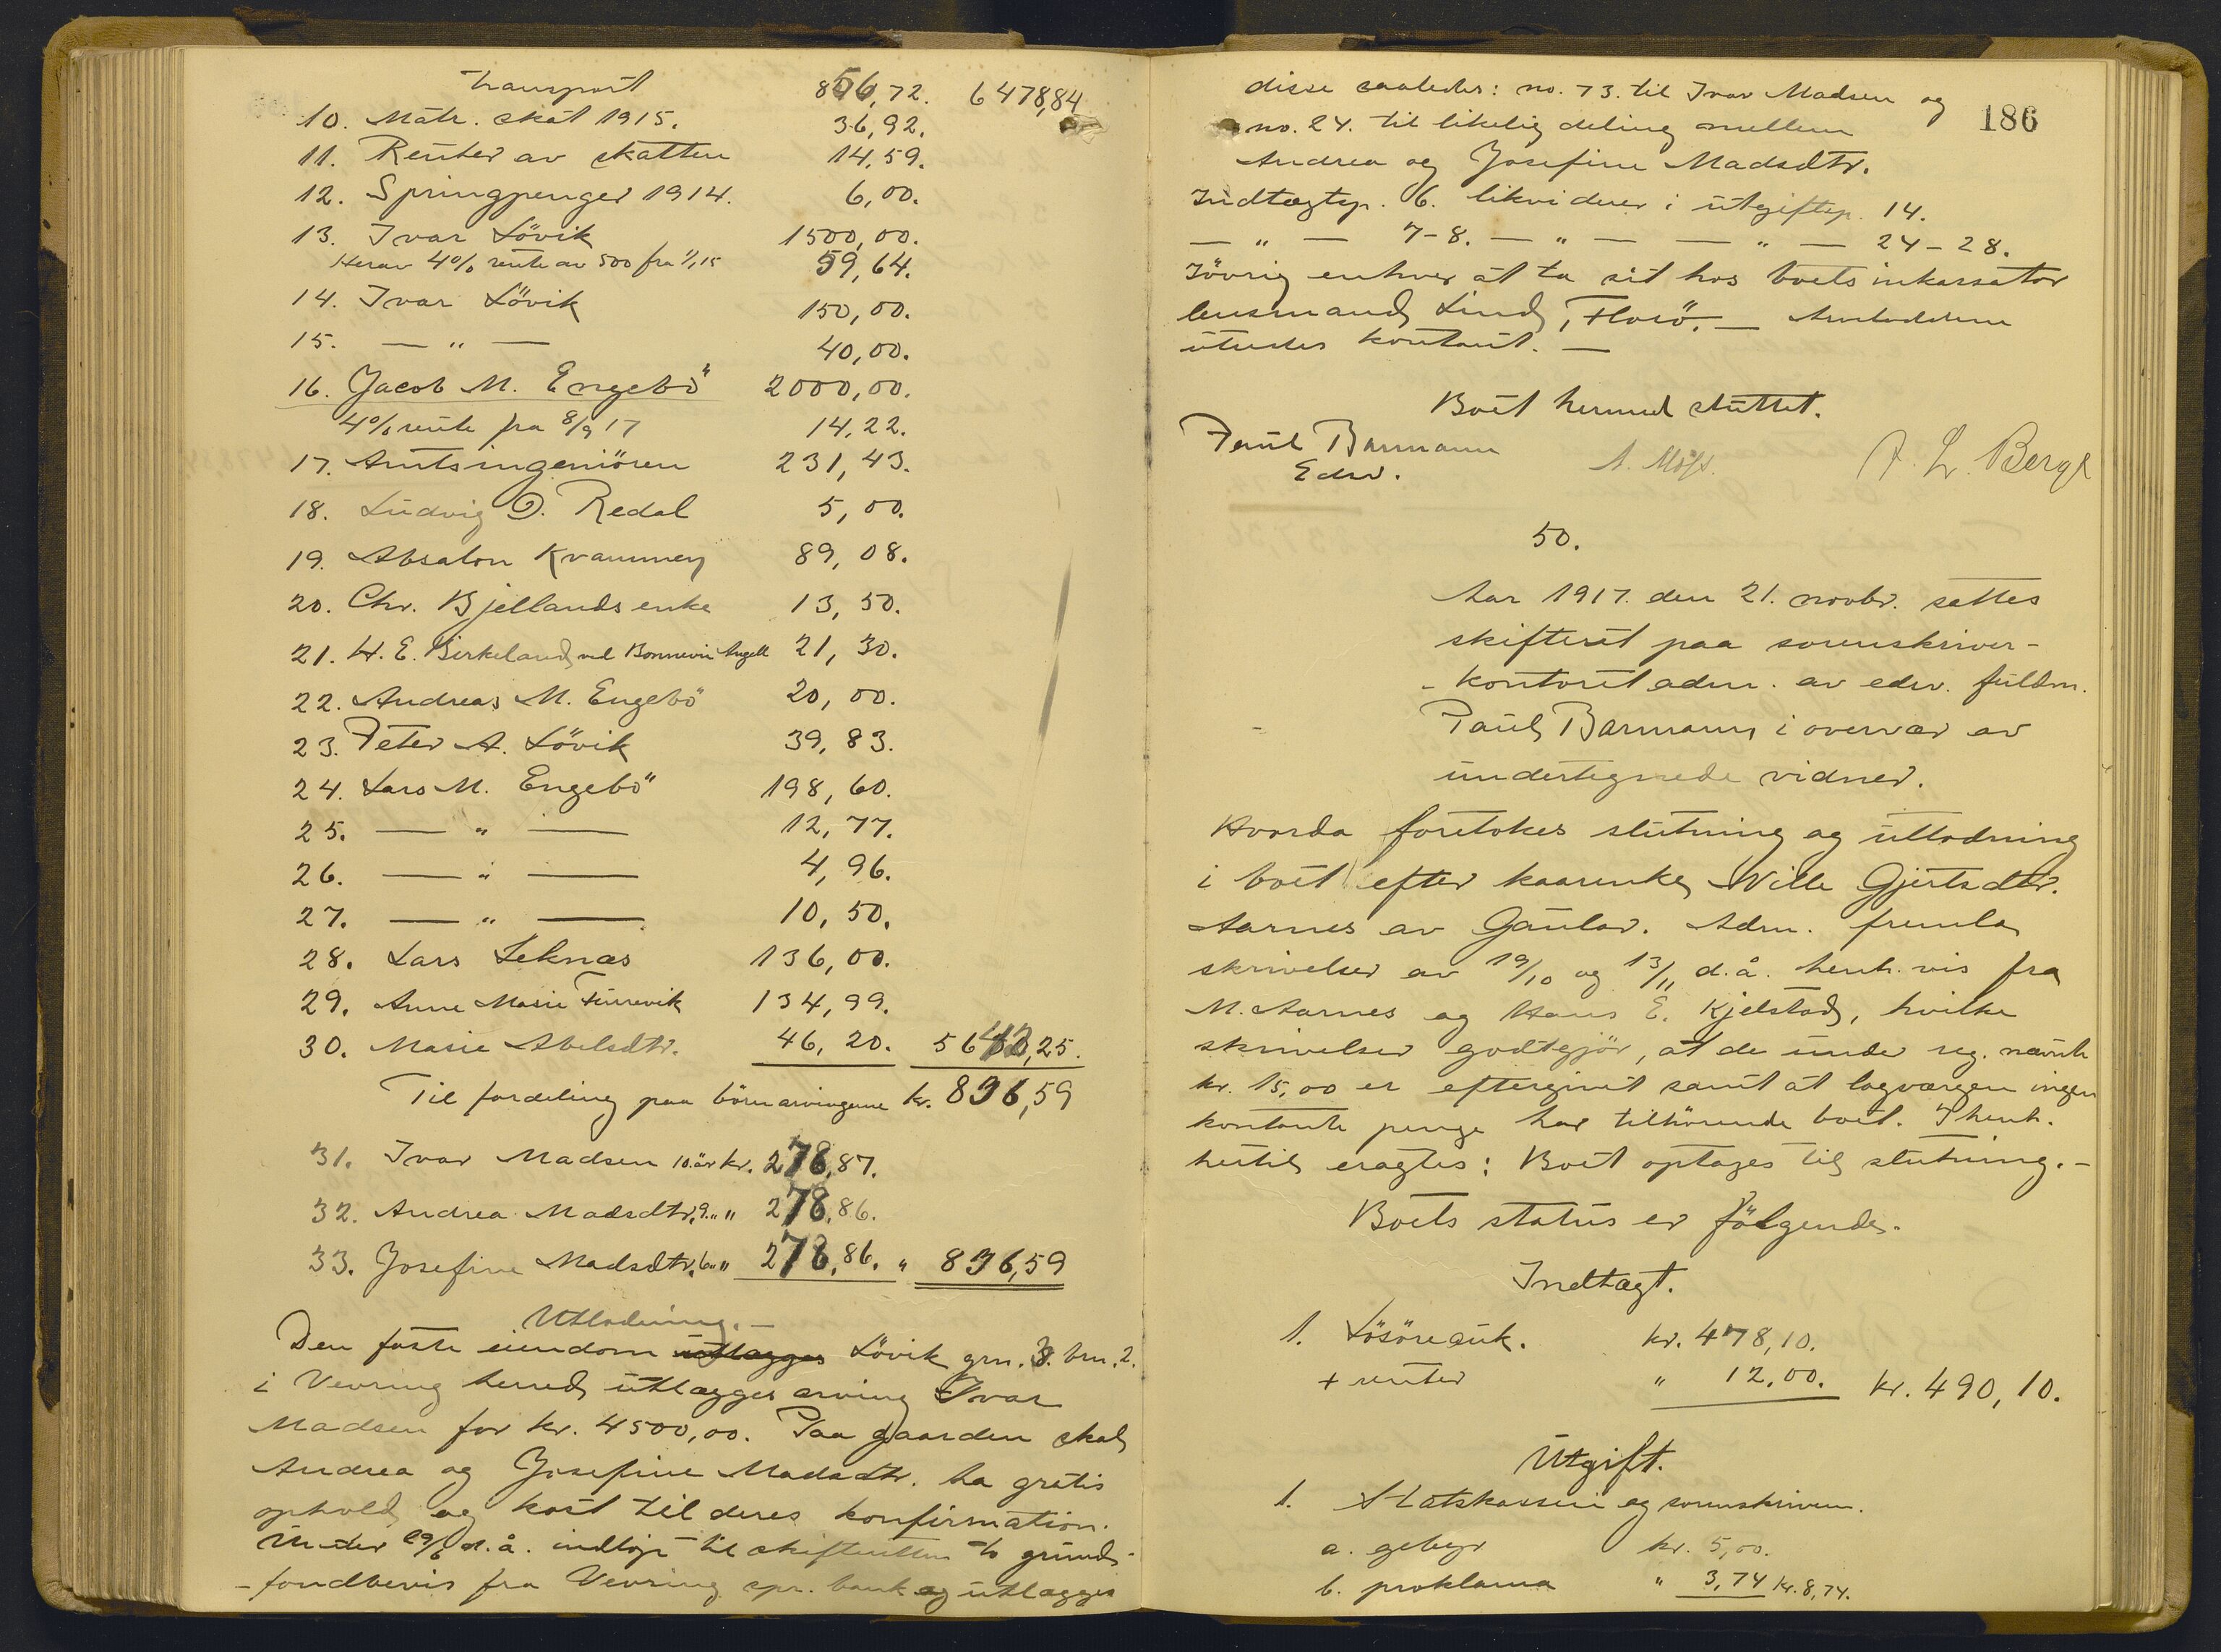 Transport 856,72. 6478,84
10. Matr. skat 1915. 36,92.
11. Renter av skatten 14,59.
12. Springpenger 1914. 6,00.
13. Ivar Lövik 1500,00.
Herav 4% rente av 500 fra 1/1 15 59,64.
14. Ivar Lövik 150,00.
15. — " — 40,00.
16. Jacob M. Engebö 2000,00.
4% rente fra 8/9 17 14,22.
17. Amtsingeniören 231,43.
18. Ludvig O. Redal 5,00.
19. Absalon Kvammen 89,08.
20. Chr. Bjellands enke 13,50.
21. H. E. Birkeland ved Bonnevie Angell 21,30.
22. Andreas M. Engebö 20,00.
23. Peter A. Lövik 39,83.
24. Lars M. Engebö 198,60.
25. — " — 12,77.
26. — " — 4,96.
27. — " — 10,50.
28. Lars Leknæs 136,00.
29. Anne Marie Furrevik 134,99.
30. Marie Abelsdtr. 46,20. 5642,25.
Til fordeling paa börnarvingerne kr. 836,59
31. Ivar Madsen 10. år kr. 278,87.
32. Andrea Madsdtr. 9 " " 278,86.
33. Josefine Madsdtr. 6 " " 278,86. " 836,59
Utlodning. —
Den faste eiendom utlægges Lövik grn. 8. brn. 2.
i Vevring herred utlægges arving Ivar
Madsen for kr. 4500,00. Paa gaarden skal
Andrea og Josefine Madsdtr. ha gratis
ophold og kost til deres konfirmation.
Under 29/6 d.å. indlöp til skifteretten to grund-
- fondbevis fra Vevring spr. bank og utlægges
186
disse saaledes: no. 73. til Ivar Madsen og
no. 24. til likelig deling mellem
Andrea og Josefine Madsdtr.
Indtægtsp. 6. likviderer i utgiftsp. 14.
— " — 7-8. — " — — " — 24-28.
Iövrig enhver at ta sit hos boets inkassator
lensmand Lind, Florö. — Arvelodderne
utredes kontant. —
Boet hermed sluttet.
Paul Barmann
Edsv.
A. Moss.
A. L. Berge
50.
Aar 1917. den 21. novbr. sattes
skifteret paa sorenskriver-
- kontoret adm. av edsv. fuldm.
Paul Barmann i overvær av
undertegnede vidner.
Hvorda foretokes slutning og utlodning
i boet efter kaarenke Wille Gjertsdtr.
Aarnes av Gaular. Adm. fremla
skrivelser av 19/10 og 13/11 d.å. henh. vis fra
M. Aarnes og Hans E. Kjelstad, hvilke
skrivelser godtgjör, at de under reg. nævnte
kr. 15,00 er eftergivet samt at lagværgen ingen
kontante penge har tilhörende boet. I henh.
hertil eragtes: Boet optages til slutning. -
Boets status er fölgende.
Indtægt.
1. Lösöreauk. kr. 478,10.
+ renter " 12,00. kr. 490,10.
Utgift.
1. Statskassen og sorenskriveren.
a. gebyr kr. 5,00.
b. proklama " 3,74 kr. 8,74.